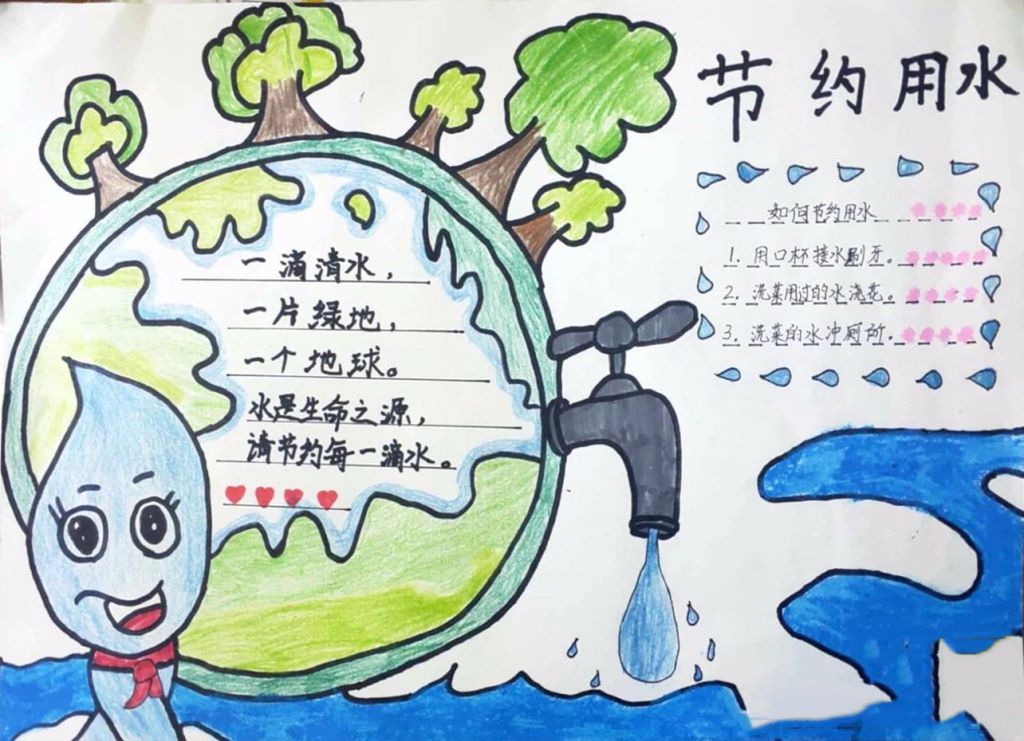 节约用水
一滴清水，
一片绿地，
一个地球。
水是生命之源，
请节约每一滴水。
如何节约用水
1. 用口杯接水刷牙。
2. 洗菜用过的水浇花。
3. 洗菜的水冲厕所。